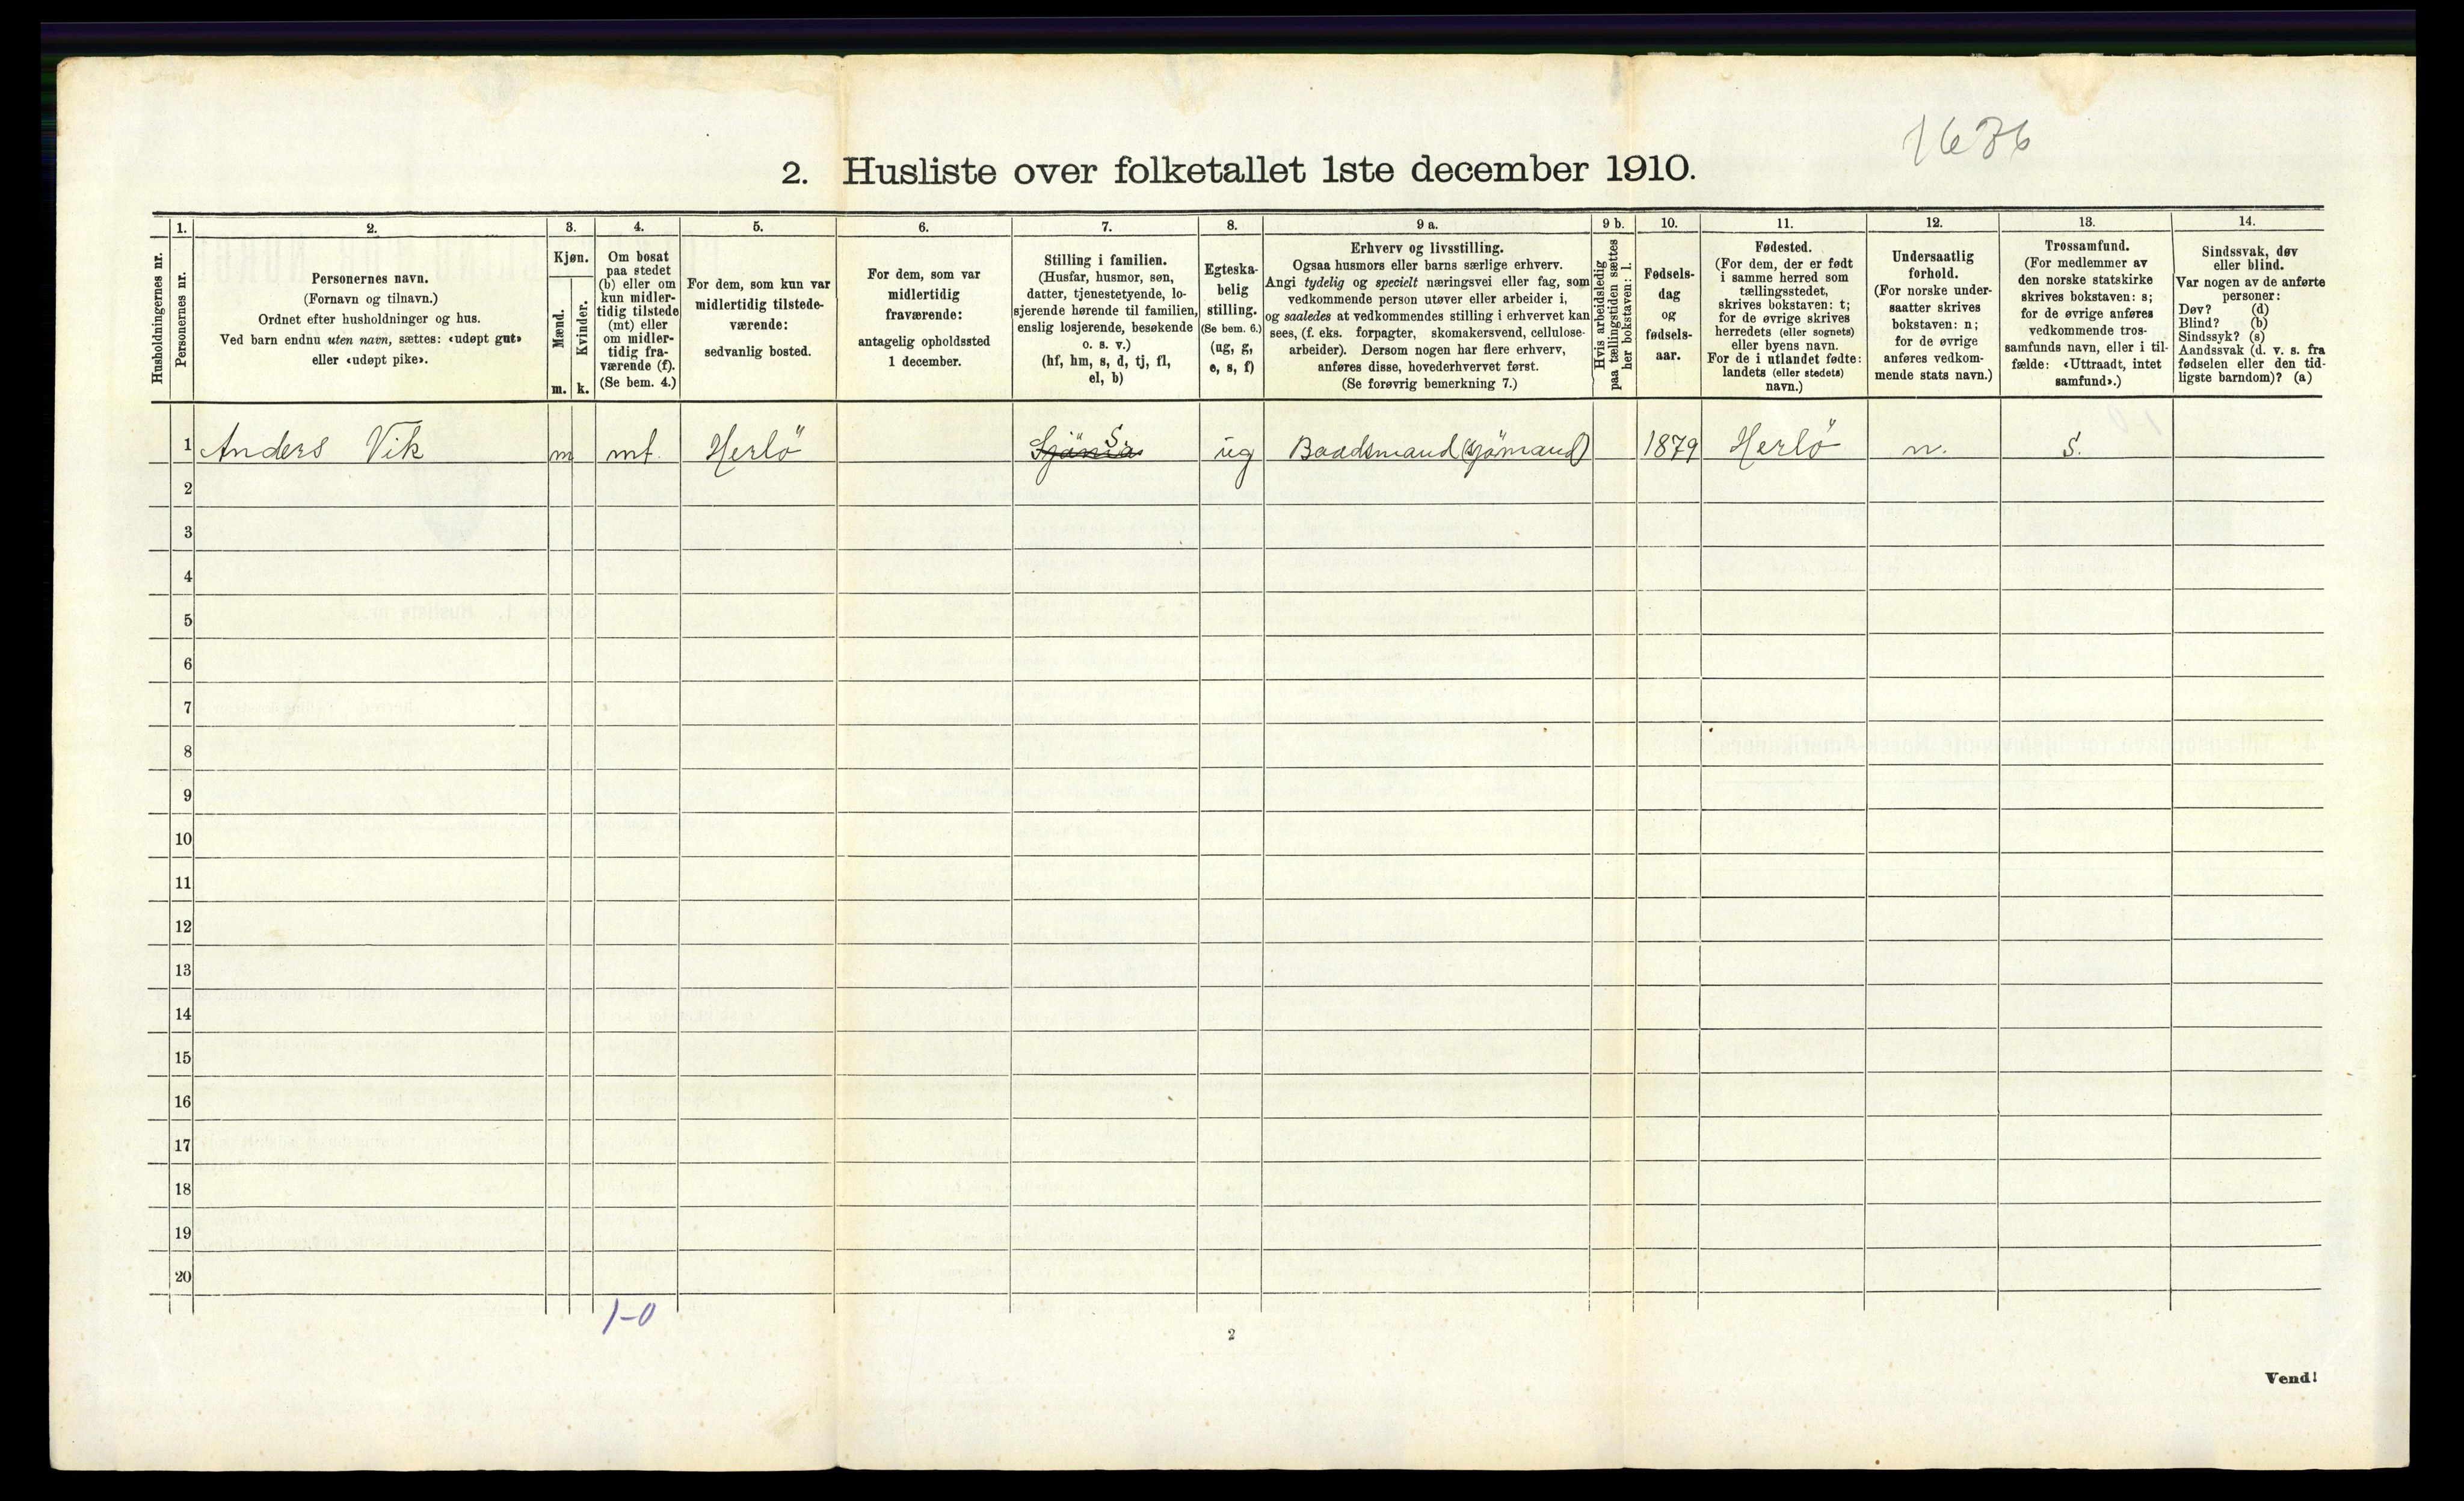 1676
2. Husliste over folketallet 1ste december 1910.
Husholdningernes nr.
1.
Personernes nr.
2.
Personernes navn.
(Fornavn og tilnavn.)
Ordnet efter husholdninger og hus.
Ved barn endnu uten navn, sættes: «udøpt gut»
eller «udøpt pike».
3.
Kjøn.
Mænd.
Kvinder.
m. k.
4.
Om bosat
paa stedet
(b) eller om
kun midler-
tidig tilstede
(mt) eller
om midler-
tidig fra-
værende (f).
(Se bem. 4.)
5.
For dem, som kun var
midlertidig tilstede-
værende:
sedvanlig bosted.
6.
For dem, som var
midlertidig
fraværende:
antagelig opholdssted
1 december.
7.
Stilling i familien.
(Husfar, husmor, søn,
datter, tjenestetyende, lo-
sjerende hørende til familien,
enslig losjerende, besøkende
o. s. v.)
(hf, hm, s, d, tj, fl,
el, b)
8.
Egteska-
belig
stilling.
(Se bem. 6.)
(ug, g,
e, s, f)
9 a.
Erhverv og livsstilling.
Ogsaa husmors eller barns særlige erhverv.
Angi tydelig og specielt næringsvei eller fag, som
vedkommende person utøver eller arbeider i,
og saaledes at vedkommendes stilling i erhvervet kan
sees, (f. eks. forpagter, skomakersvend, cellulose-
arbeider). Dersom nogen har flere erhverv,
anføres disse, hovederhvervet først.
(Se forøvrig bemerkning 7.)
9 b.
Hvis arbeidsledig
paa tællingstiden sættes
her bokstaven: l.
10.
Fødsels-
dag
og
fødsels-
aar.
11.
Fødested.
(For dem, der er født
i samme herred som
tællingsstedet,
skrives bokstaven: t;
for de øvrige skrives
herredets (eller sognets)
eller byens navn.
For de i utlandet fødte:
landets (eller stedets)
navn.)
12.
Undersaatlig
forhold.
(For norske under-
saatter skrives
bokstaven: n;
for de øvrige
anføres vedkom-
mende stats navn.)
13.
Trossamfund.
(For medlemmer av
den norske statskirke
skrives bokstaven: s;
for de øvrige anføres
vedkommende tros-
samfunds navn, eller i til-
fælde: «Uttraadt, intet
samfund».)
14.
Sindssvak, døv
eller blind.
Var nogen av de anførte
personer:
Døv? (d)
Blind? (b)
Sindssyk? (s)
Aandssvak (d. v. s. fra
fødselen eller den tid-
ligste barndom)? (a)
1 Anders Vik m mt. Herlö S. ug Baadsmand (Sjömand) 1879 Herlö n. S.
2
3
4
5
6
7
8
9
10
11
12
13
14
15
16
17
18
19
20
1-0
2
Vend!